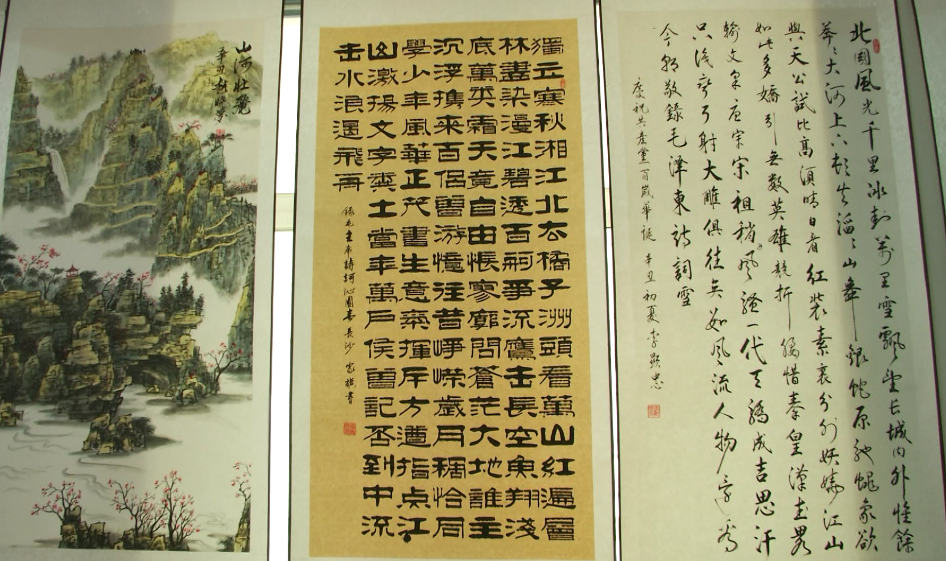 北國風光千里冰封萬里雪飄望长城内外惟餘
莽〻大河上下頓失滔〻山舞銀蛇原馳蠟象欲
與天公試比高須晴日看紅裝素裹分外妖嬈江山
如此多嬌引無數英雄競折腰惜秦皇漢武略
輸文采唐宗宋祖稍風騷一代天驕成吉思汗
只識彎弓射大雕俱往矣數風流人物還看
今朝敬錄毛澤東詩詞雪
慶祝共產黨百歲華誕 辛丑初夏
獨立寒秋湘江北去橘子洲頭看萬山紅遍層
林盡染漫江碧透百舸爭流鷹击長空魚翔淺
底萬类霜天竟自由悵寥廓問蒼茫大地誰主
沉浮攜來百侶曾游憶往昔崢嶸歲月稠恰同
學少年風華正茂書生意氣揮斥方遒指点江
山激揚文字糞土當年萬戶侯曾記否到中流
击水浪遏飛舟
錄毛主席詩詞沁園春長沙 家祺書
山河壯麗
辛丑